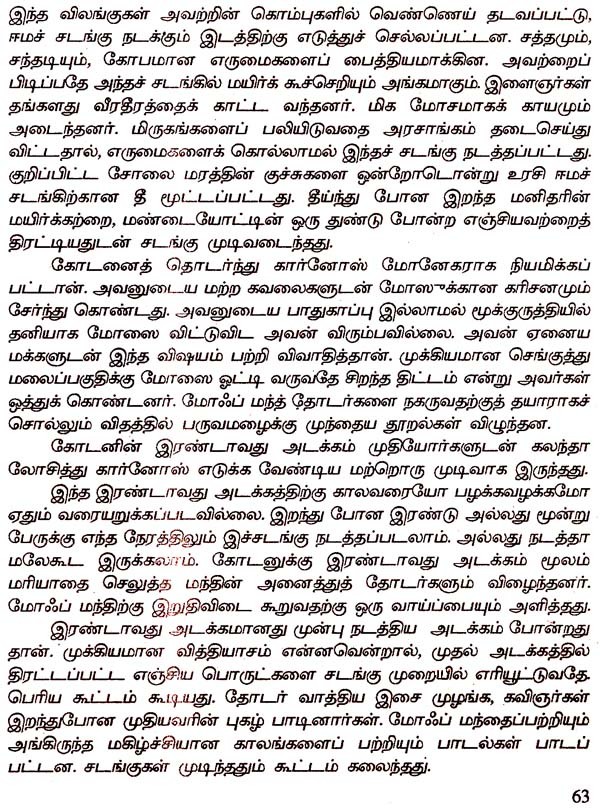 இந்த விலங்குகள் அவற்றின் கொம்புகளில் வெண்ணெய் தடவப்பட்டு,
ஈமச் சடங்கு நடக்கும் இடத்திற்கு எடுத்துச் செல்லப்பட்டன. சத்தமும்,
சந்தடியும், கோபமான எருமைகளைப் பைத்தியமாக்கின. அவற்றைப்
பிடிப்பதே அந்தச் சடங்கில் மயிர்க் கூச்செறியும் அங்கமாகும். இளைஞர்கள்
தங்களது வீரதீரத்தைக் காட்ட வந்தனர். மிக மோசமாகக் காயமும்
அடைந்தனர். மிருகங்களைப் பலியிடுவதை அரசாங்கம் தடைசெய்து
விட்டதால், எருமைகளைக் கொல்லாமல் இந்தச் சடங்கு நடத்தப்பட்டது.
குறிப்பிட்ட சோலை மரத்தின் குச்சுகளை ஒன்றோடொன்று உரசி ஈமச்
சடங்கிற்கான தீ மூட்டப்பட்டது. தீய்ந்து போன இறந்த மனிதரின்
மயிர்க்கற்றை, மண்டையோட்டின் ஒரு துண்டு போன்ற எஞ்சியவற்றைத்
திரட்டியதுடன் சடங்கு முடிவடைந்தது.
கோடனைத் தொடர்ந்து கார்னோஸ் மோனேகராக நியமிக்கப்
பட்டான். அவனுடைய மற்ற கவலைகளுடன் மோஸுக்கான கரிசனமும்
சேர்ந்து கொண்டது. அவனுடைய பாதுகாப்பு இல்லாமல் மூக்குருத்தியில்
தனியாக மோஸை விட்டுவிட அவன் விரும்பவில்லை. அவன் ஏனைய
மக்களுடன் இந்த விஷயம் பற்றி விவாதித்தான். முக்கியமான செங்குத்து
மலைப்பகுதிக்கு மோஸை ஓட்டி வருவதே சிறந்த திட்டம் என்று அவர்கள்
ஒத்துக் கொண்டனர். மோஃப் மந்த் தோடர்களை நகருவதற்குத் தயாராகச்
சொல்லும் விதத்தில் பருவமழைக்கு முந்தைய தூறல்கள் விழுந்தன.
கோடனின் இரண்டாவது அடக்கம் முதியோர்களுடன் கலந்தா
லோசித்து கார்னோஸ் எடுக்க வேண்டிய மற்றொரு முடிவாக இருந்தது.
இந்த இரண்டாவது அடக்கத்திற்கு காலவரையோ பழக்கவழக்கமோ
ஏதும் வரையறுக்கப்படவில்லை. இறந்து போன இரண்டு அல்லது மூன்று
பேருக்கு எந்த நேரத்திலும் இச்சடங்கு நடத்தப்படலாம். அல்லது நடத்தா
மலேகூட இருக்கலாம். கோடனுக்கு இரண்டாவது அடக்கம் மூலம்
மரியாதை செலுத்த மந்தின் அனைத்துத் தோடர்களும் விழைந்தனர்.
மோஃப் மந்திற்கு இறுதிவிடை கூறுவதற்கு ஒரு வாய்ப்பையும் அளித்தது.
இரண்டாவது அடக்கமானது முன்பு நடத்திய அடக்கம் போன்றது
தான். முக்கியமான வித்தியாசம் என்னவென்றால், முதல் அடக்கத்தில்
திரட்டப்பட்ட எஞ்சிய பொருட்களை சடங்கு முறையில் எரியூட்டுவதே.
பெரிய கூட்டம் கூடியது. தோடர் வாத்திய இசை முழங்க, கவிஞர்கள்
இறந்துபோன முதியவரின் புகழ் பாடினார்கள். மோஃப் மந்தைப்பற்றியும்
அங்கிருந்த மகிழ்ச்சியான காலங்களைப் பற்றியும் பாடல்கள் பாடப்
பட்டன. சடங்குகள் முடிந்ததும் கூட்டம் கலைந்தது.
63